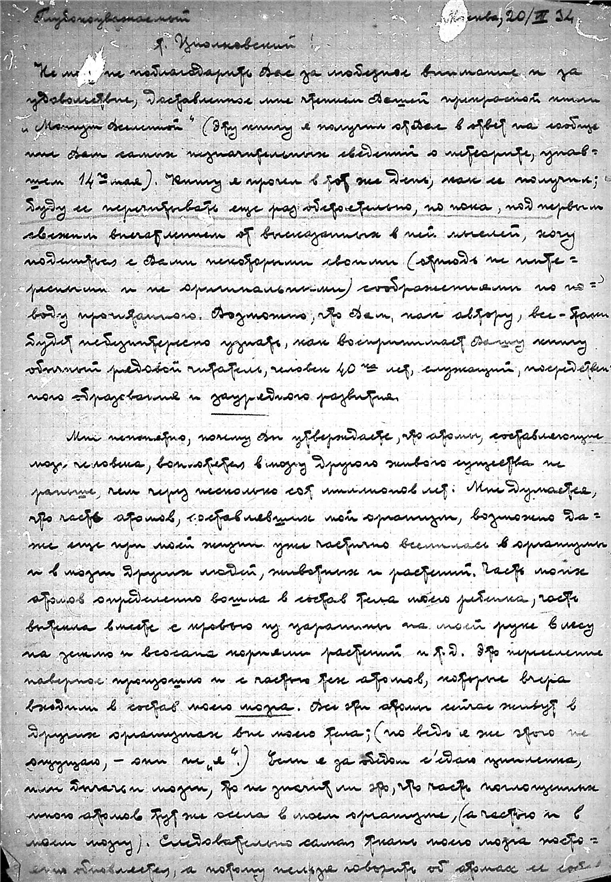 Глубокоуважаемый Москва, 20/VI 34
т. Циолковский!
Не могу не поблагодарить Вас за любезное внимание и за
удовольствие, доставленное мне чтением Вашей прекрасной книги
„Монизм Вселенной" (эту книгу я получил от Вас в ответ на сообще
ние Вам самых незначительных сведений о метеорите, упав=
шем 14го мая). Книгу я прочел в тот же день, как ее получил;
буду ее перечитывать еще раз обстоятельно, но пока, под первым
свежим впечатлением от высказанных в ней мыслей, хочу
поделиться с Вами некоторыми своими (отнюдь не инте=
ресными и не оригинальными) соображениями по по=
воду прочитанного. Возможно, что Вам, как автору, все-таки
будет небезинтересно узнать, как воспринимает Вашу книгу
обычный рядовой читатель, человек 40 лет, служащий, посредствен
ного образования и заурядного развития.
Мне непонятно, почему Вы утверждаете, что атомы, составляющие
мозг человека, воплотятся в мозгу другого живого существа не
раньше, чем через несколько сот миллионов лет. Мне думается,
что часть атомов, составлявших мой организм, возможно да=
же еще при моей жизни уже частично вселилась в организмы
и в мозги других людей, животных и растений. Часть моих
атомов определенно вошла в состав тела моего ребенка, часть
вытекла вместе с кровью из царапины на моей руке в лесу
на землю и всосана корнями растений и т.д. Это переселение
наверное произошло и с частью тех атомов, которые вчера
входили в состав моего мозга. Все эти атомы сейчас живут в
других организмах вне моего тела; (но ведь я же этого не
ощущаю, – они не „я".) Если я за обедом с'едаю цыпленка,
или бычачьи мозги, то не значит ли это, что часть поглощенных
мною атомов тут же осела в моем организме, (а частью и в
моем мозгу). Следовательно самая ткань моего мозга посто=
янно обновляется, а потому нельзя говорить об атомах ее состав